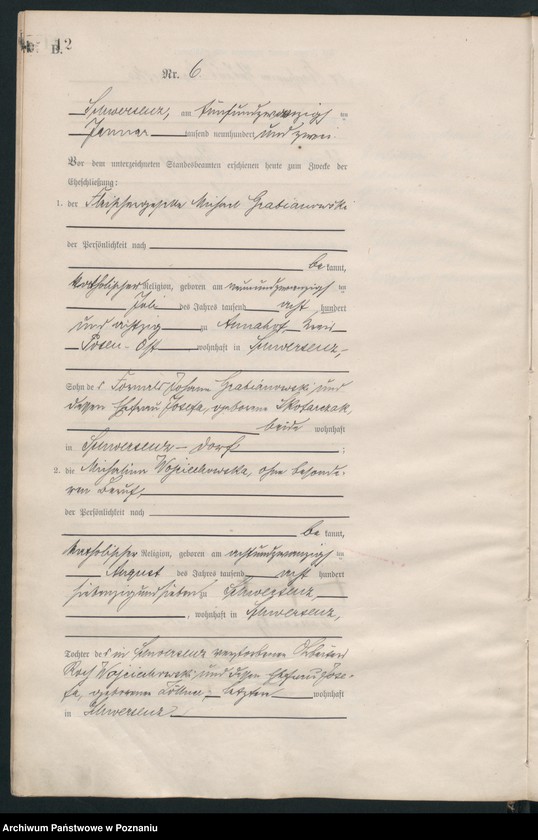 B.
12
Nr. 6
Schwersenz, am fünfundzwanzigsten
Januar tausend neunhundert und zwei.
Vor dem unterzeichneten Standesbeamten erschienen heute zum Zwecke der
Eheschließung:
1. der Fleischergeselle Michael Grabianowski
der Persönlichkeit nach
bekannt,
katholischer Religion, geboren am neunundzwanzigsten
Juli des Jahres tausend acht hundert
und achtzig zu Annahof, Kreis
Posen-Ost wohnhaft in Schwersenz,
Sohn des Fornals Johann Grabianowski und
dessen Ehefrau Josefa, geborene Skotarczak,
beide wohnhaft
in Schwersenz-Dorf ;
2. die Michalina Wojciechowska, ohne besonde-
ren Beruf,
der Persönlichkeit nach
bekannt,
katholischer Religion, geboren am achtundzwanzigsten
August des Jahres tausend acht hundert
siebenzig und sieben zu Schwersenz,
, wohnhaft in Schwersenz,
Tochter des in Schwersenz verstorbenen Arbeiters
Roch Wojciechowski und dessen Ehefrau Jose-
fa, geborenen letztere wohnhaft
in Schwersenz
Archiwum Państwowe w Poznaniu